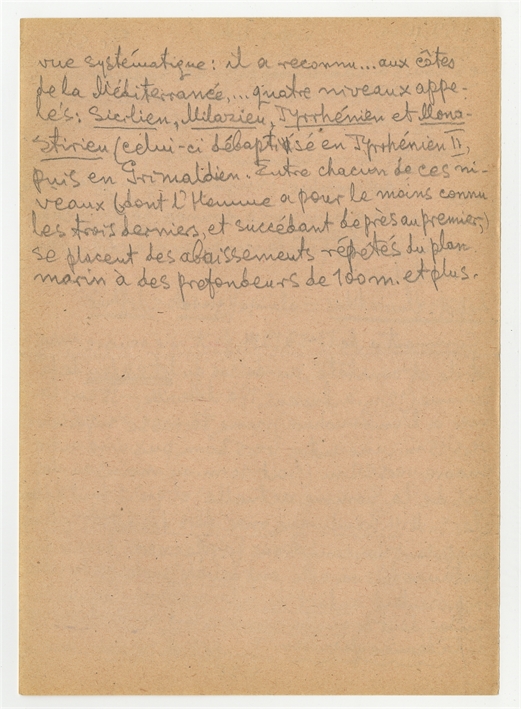 vue systématique : il a reconnu... aux côtes
de la Méditerrannée,... quatre niveaux appe-
lés : Sicilien, Milazien, Tyrrhénien et Mona-
stirien (celui-ci débaptisé en Tyrrhénien II,
puis en Grimaldien. Entre chacun de ces ni-
veaux (dont l'Homme a pour le moins connu
les trois derniers, et succédant de près au premier,)
se placent des abaissements répetés du plan
marin à des profondeurs de 100 m. et plus.